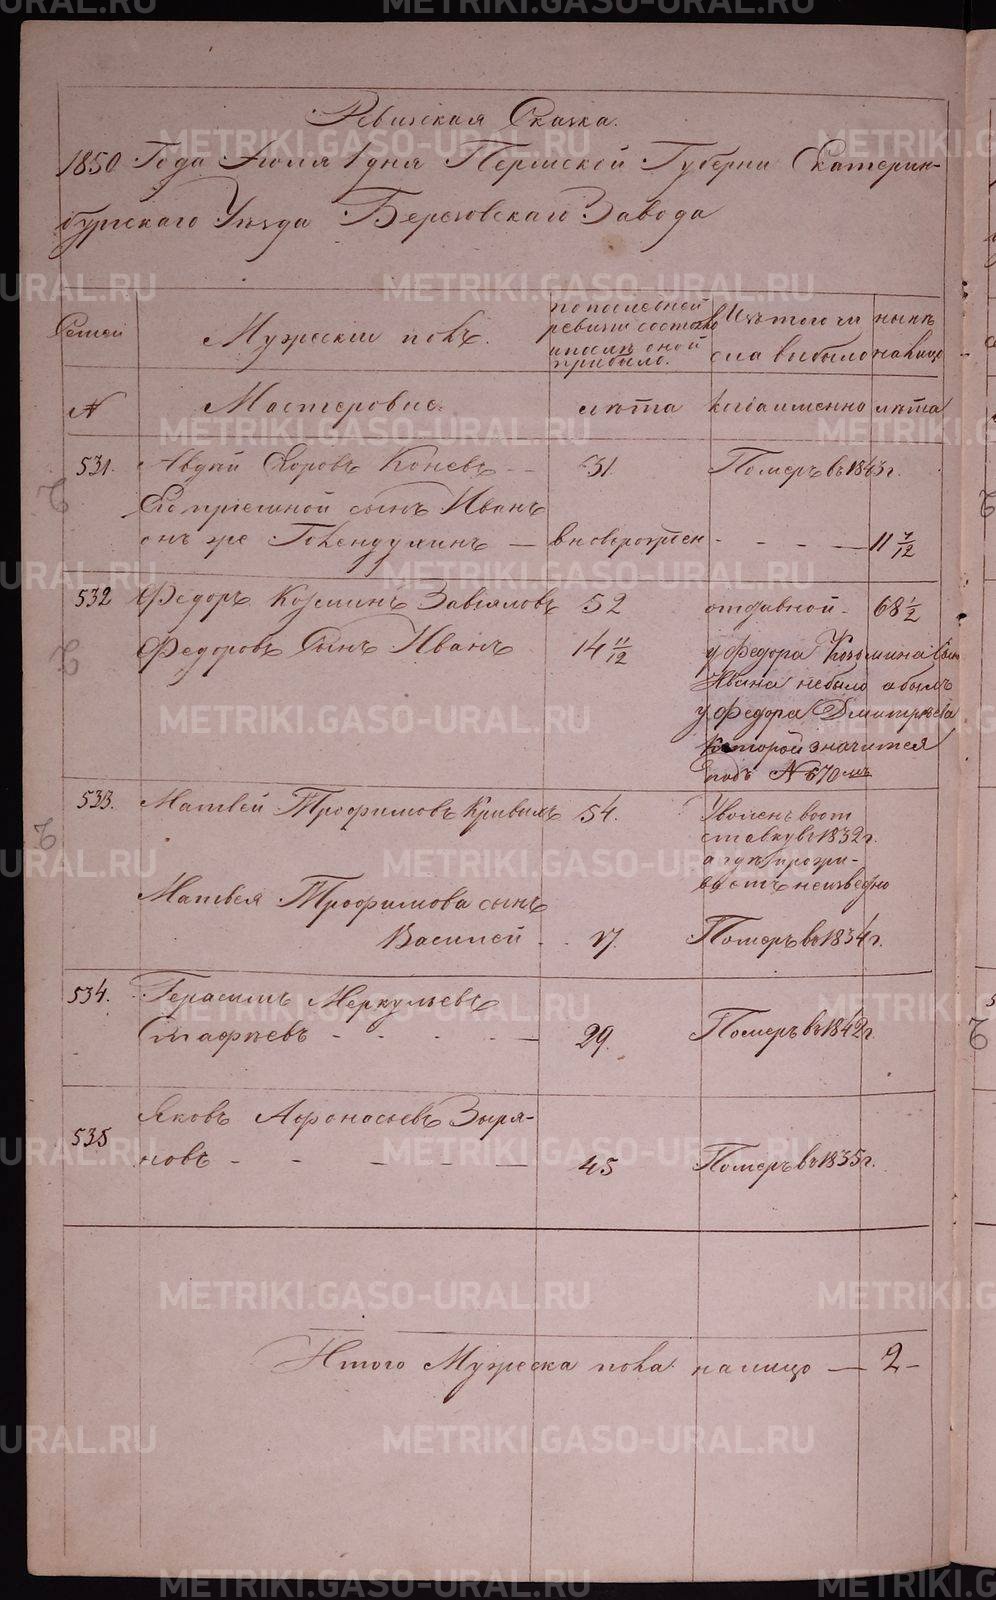 Ревизская Сказка.
1850 Года Июля 1 дня Пермской Губерни Екатерин-
бургскаго Уезда Березовскаго Завода
Семей
Мужеский полъ.
по последней
ревизи состояло
и после оной
прибыло.
Изъ того числа выбыло
ныне на лицо
№
Мастеровые.
лета
когда именно
лета
531. Авдей Егоровъ Коневъ - - 31. Померъ въ 1843 г.
Его приемной сынъ Иванъ
онъ же — вновьрожден - - - — 11 7/12
532 Федоръ Козминъ Завьяловъ 52 отдавной - 68 1/2
Федоровъ Сынъ Иванъ 14 11/12 у Федора Козьмина Сын
Ивана небыло а былъ
у Федора Дмитриева
которой значится
подъ № 670 мъ
533. Матвей Трофимовъ Кривыхъ 54. Уволенъ вот
ставку въ 1832 г.
а где прожи-
ваетъ неизведно
Матвея Трофимова сынъ
Василей - - 17. Померъ въ 1834 г.
534. Герасимъ Меркульевъ
Стафеевъ - - - - — 29. Померъ въ 1842 г.
535 Яковъ Афонасьевъ Зыря-
новъ - - — — — 45 Померъ въ 1835 г.
Итого Мужеска пола налицо — 2 -
METRIKI.GASO-URAL.RU